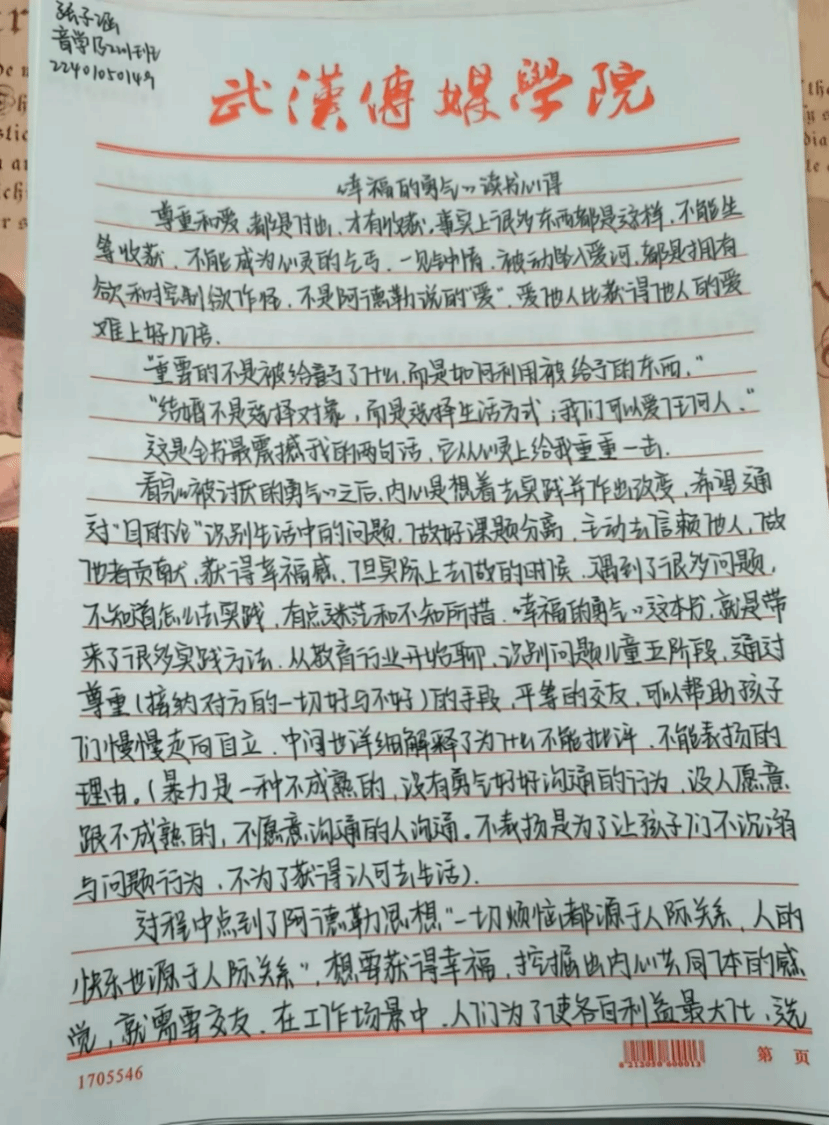 张子涵
音学182201班
22401050149
武漢傳媒學院
《幸福的勇气》读书心得
尊重和爱,都是付出,才有收获,事实上很多东西都是这样,不能坐
等收获,不能成为心灵的乞丐,一见钟情,被动坠入爱河,都是拥有
欲和控制欲作怪,不是阿德勒说的"爱",爱他人比获得他人的爱
难上好几倍.
"重要的不是被给予了什么,而是如何利用被给予的东西."
"结婚不是选择对象,而是选择生活方式;我们可以爱任何人."
这是全书最震撼我的两句话,它从心灵上给我重重一击.
看完《被讨厌的勇气》之后,内心是想着去实践并作出改变,希望通
过"目的论"识别生活中的问题,做好课题分离,主动去信赖他人,做
他者贡献,获得幸福感,但实际上去做的时候,遇到了很多问题,
不知道怎么去实践,有点迷茫和不知所措.《幸福的勇气》这本书,就是带
来了很多实践方法.从教育行业开始聊,识别问题儿童五阶段,通过
尊重(接纳对方的一切好与不好)的手段,平等的交友,可以帮助孩子
们慢慢走向自立,中间也详细解释了为什么不能批评,不能表扬的
理由。(暴力是一种不成熟的,没有勇气好好沟通的行为,没人愿意
跟不成熟的,不愿意沟通的人沟通。不表扬是为了让孩子们不沉溺
与问题行为,不为了获得认可去生活).
过程中点到了阿德勒思想"一切烦恼都源于人际关系,人的
快乐也源于人际关系",想要获得幸福,挖掘出内心共同体的感
觉,就需要交友.在工作场景中,人们为了使各自利益最大化,选
1705546
第 页